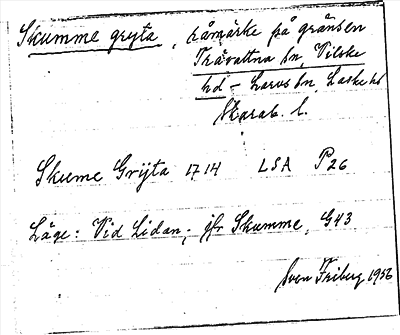 Skumme gryta, råmärke på gränsen
Trävattna sn, Vilske
hd – Larvs sn, Laske hd
Skarab. l.
Skume Gryta 1714 LSA P26
Läge: Vid Lidan, jfr Skumme, G43
Sven Friberg 1956